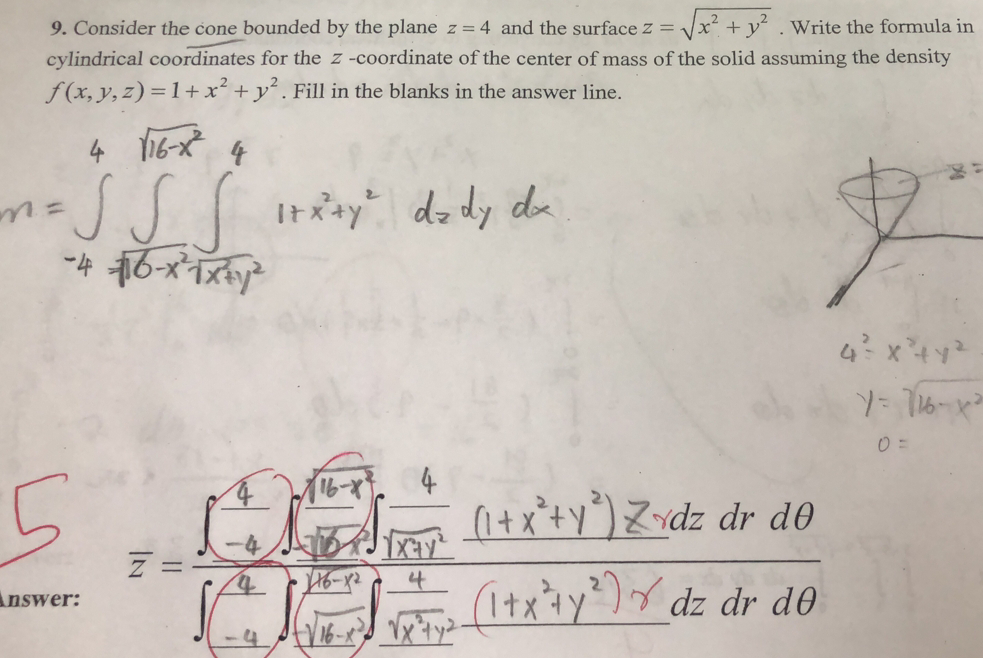 9. Consider the cone bounded by the plane z = 4 and the surface z = √(x² + y²) . Write the formula in
cylindrical coordinates for the z -coordinate of the center of mass of the solid assuming the density
f(x, y, z) = 1 + x² + y². Fill in the blanks in the answer line.
m = ∫_{-4}^{4} ∫_{-√(16-x²)}^{√(16-x²)} ∫_{√(x²+y²)}^{4} 1+x²+y² dz dy dx
z =
4² = x²+y²
y = √(16-x²)
0 =
5
Answer:
z̄ = ∫_{-4}^{4} ∫_{-√(16-x²)}^{√(16-x²)} ∫_{√(x²+y²)}^{4} (1+x²+y²) z r dz dr dθ
∫_{-4}^{4} ∫_{-√(16-x²)}^{√(16-x²)} ∫_{√(x²+y²)}^{4} (1+x²+y²) r dz dr dθ